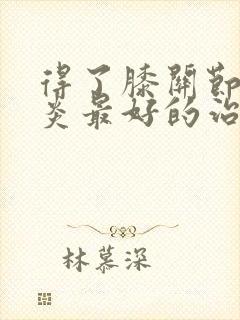 得了膝關節
炎最好的治
林慕深